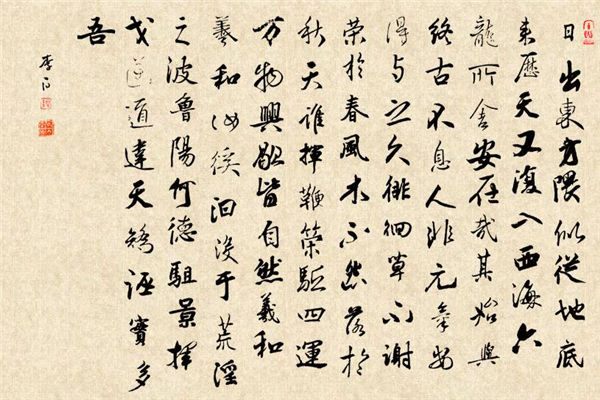 日出東方隈似從地底
来歷天又復入西海六
龍所舍安在哉其始與
終古不息人非元氣安
得与之久徘徊草不謝
荣於春風木不怨落於
秋天誰揮鞭策駈四運
万物興歇皆自然羲和
羲和汝奚汩没于荒淫
之波魯陽何德駐景揮
戈逆道違天矯誣實多
吾
李白